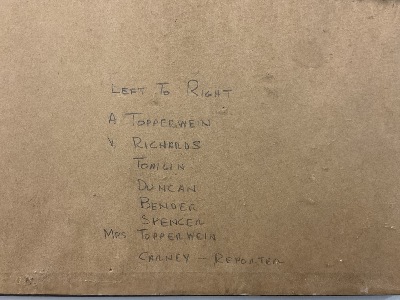 LEFT TO RIGHT
A TOPPERWEIN
V RICHARDS
TOMLIN
DUNCAN
BENDER
SPENCER
MRS TOPPERWEIN
CARNEY - REPORTER